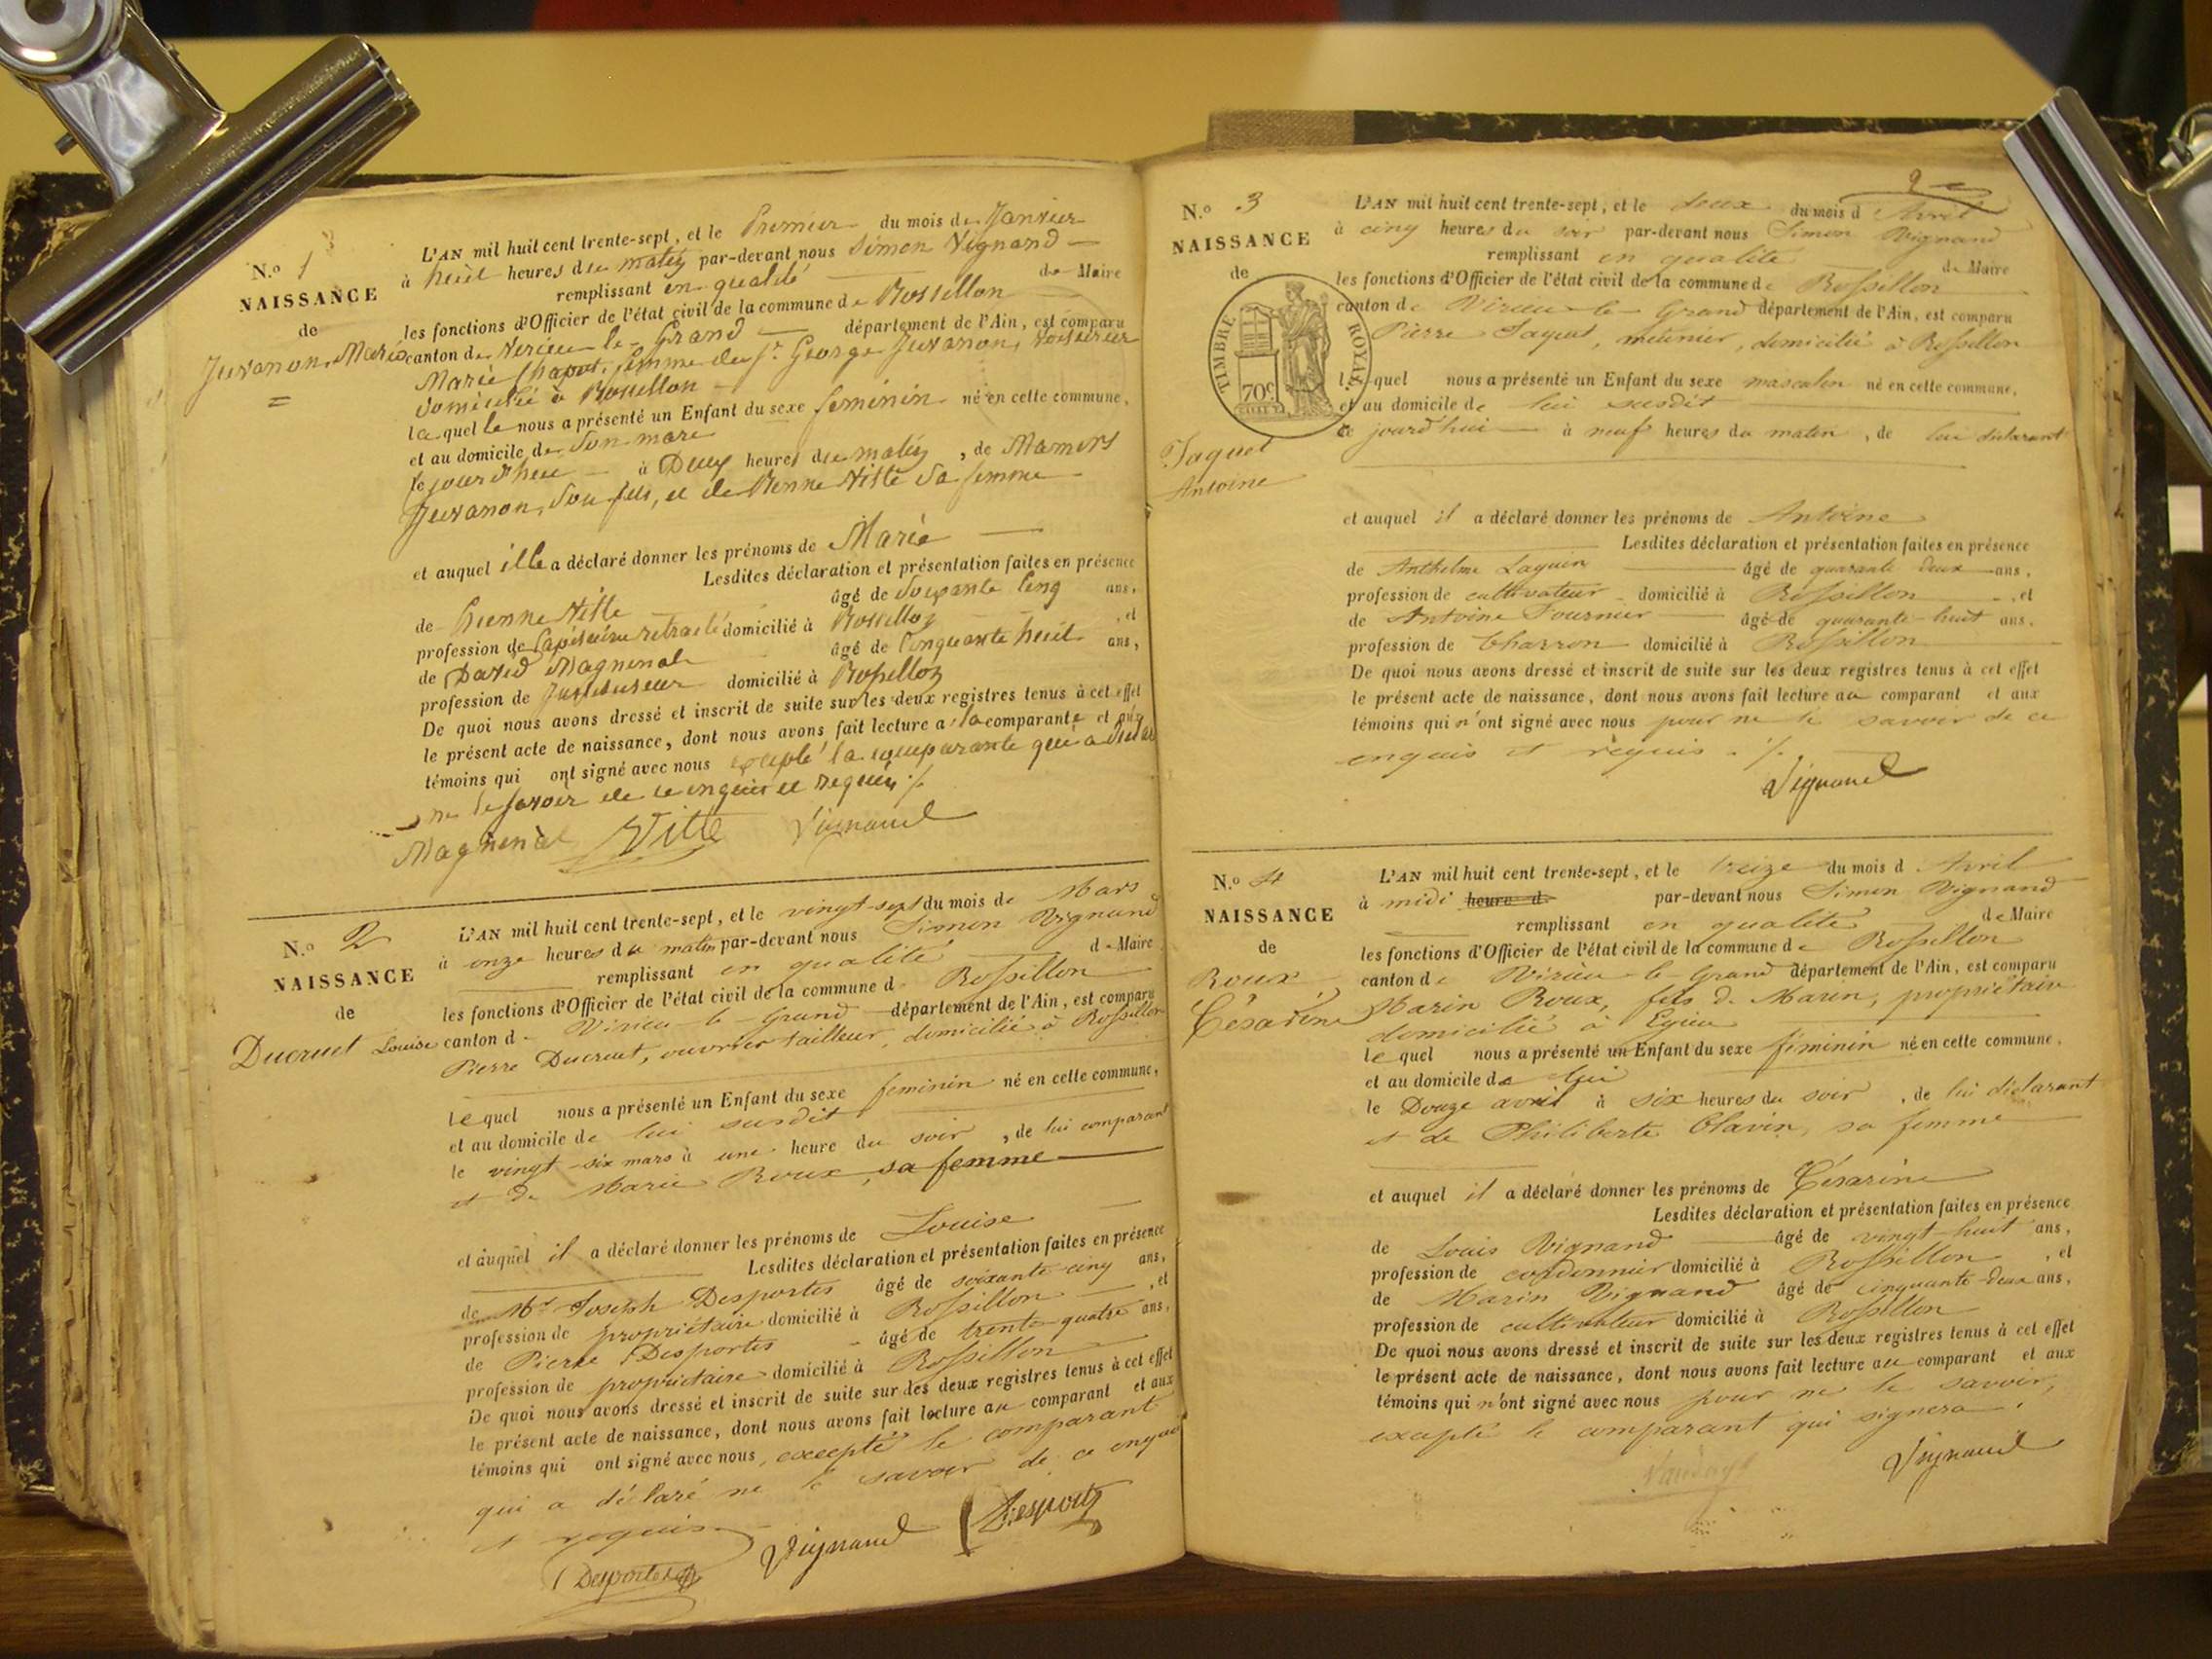 N.o 1
NAISSANCE
de
Juvanon, Marie
=
L'AN mil huit cent trente-sept, et le Premier du mois de Janvier
à huit heures du matin par-devant nous Simon Vignand
remplissant en qualité de Maire
les fonctions d'Officier de l'état civil de la commune de Rossillon
canton de Virieu-le-Grand département de l'Ain, est comparu
Marie Chapot, femme du Sr George Juvanon,
domicilié à Rossillon
laquelle nous a présenté un Enfant du sexe feminin né en cette commune,
et au domicile de Son mari
ce jourd'hui à Deux heures du matin, de Mamers
Juvanon, Son fils, et de Vitte Sa femme
et auquel elle a déclaré donner les prénoms de Marie
Lesdites déclaration et présentation faites en présence
de Vitte âgé de Soixante Cinq ans,
profession de Capitaine retraité domicilié à Rossillon, et
de David Magnenat âgé de Cinquante huit ans,
profession de domicilié à Rossillon
De quoi nous avons dressé et inscrit de suite sur les deux registres tenus à cet effet
le présent acte de naissance, dont nous avons fait lecture a la comparante et aux
témoins qui ont signé avec nous excepté la comparante qui a déclaré
ne le savoir de ce enquis et requis ./.
Magnenat Vitte Vignand
N.o 2
NAISSANCE
de
Ducruet Louise
L'AN mil huit cent trente-sept, et le vingt-sept du mois de Mars
à onze heures du matin par-devant nous Simon Vignand
remplissant en qualité de Maire
les fonctions d'Officier de l'état civil de la commune de Rossillon
canton de Virieu-le-Grand département de l'Ain, est comparu
Pierre Ducruet, ouvrier tailleur, domicilié à Rossillon
lequel nous a présenté un Enfant du sexe feminin né en cette commune,
et au domicile de lui susdit
le vingt-six mars à une heure du soir, de lui comparant
et de Marie Roux, sa femme
et auquel il a déclaré donner les prénoms de Louise
Lesdites déclaration et présentation faites en présence
de Mr Joseph Desportes âgé de soixante cinq ans,
profession de propriétaire domicilié à Rossillon, et
de Pierre Desportes âgé de trente quatre ans,
profession de propriétaire domicilié à Rossillon
De quoi nous avons dressé et inscrit de suite sur les deux registres tenus à cet effet
le présent acte de naissance, dont nous avons fait lecture au comparant et aux
témoins qui ont signé avec nous, excepté le comparant
qui a déclaré ne le savoir de ce enquis
et requis
Desportes Vignand Desportes
2
N.o 3
NAISSANCE
de
TIMBRE ROYAL
70c
Jaquet
Antoine
L'AN mil huit cent trente-sept, et le deux du mois d Avril
à cinq heures du soir par-devant nous Simon Vignand
remplissant en qualité de Maire
les fonctions d'Officier de l'état civil de la commune de Rossillon
canton de Virieu-le-Grand département de l'Ain, est comparu
Pierre Jaquet, meunier, domicilié à Rossillon
lequel nous a présenté un Enfant du sexe masculin né en cette commune,
et au domicile de lui susdit
ce jourd'hui à neuf heures du matin, de lui déclarant
et auquel il a déclaré donner les prénoms de Antoine
Lesdites déclaration et présentation faites en présence
de Anthelme Laguin âgé de quarante deux ans,
profession de cultivateur domicilié à Rossillon, et
de Antoine Fournier âgé de quarante-huit ans,
profession de Charron domicilié à Rossillon
De quoi nous avons dressé et inscrit de suite sur les deux registres tenus à cet effet
le présent acte de naissance, dont nous avons fait lecture au comparant et aux
témoins qui n'ont signé avec nous pour ne le savoir de ce
enquis et requis ./.
Vignand
N.o 4
NAISSANCE
de
Roux
Césarine
L'AN mil huit cent trente-sept, et le treize du mois d Avril
à midi heure d par-devant nous Simon Vignand
remplissant en qualité de Maire
les fonctions d'Officier de l'état civil de la commune de Rossillon
canton de Virieu-le-Grand département de l'Ain, est comparu
Marin Roux, fils de Marin, propriétaire
domicilié à Egieu
lequel nous a présenté un Enfant du sexe féminin né en cette commune,
et au domicile de lui
le Douze avril à six heures du soir, de lui déclarant
et de Philiberte Clavin, sa femme
et auquel il a déclaré donner les prénoms de Césarine
Lesdites déclaration et présentation faites en présence
de Louis Vignand âgé de vingt-huit ans,
profession de cordonnier domicilié à Rossillon, et
de Marin Vignand âgé de cinquante-deux ans,
profession de cultivateur domicilié à Rossillon
De quoi nous avons dressé et inscrit de suite sur les deux registres tenus à cet effet
le présent acte de naissance, dont nous avons fait lecture au comparant et aux
témoins qui n'ont signé avec nous pour ne le savoir,
excepté le comparant qui signera.
Vignand